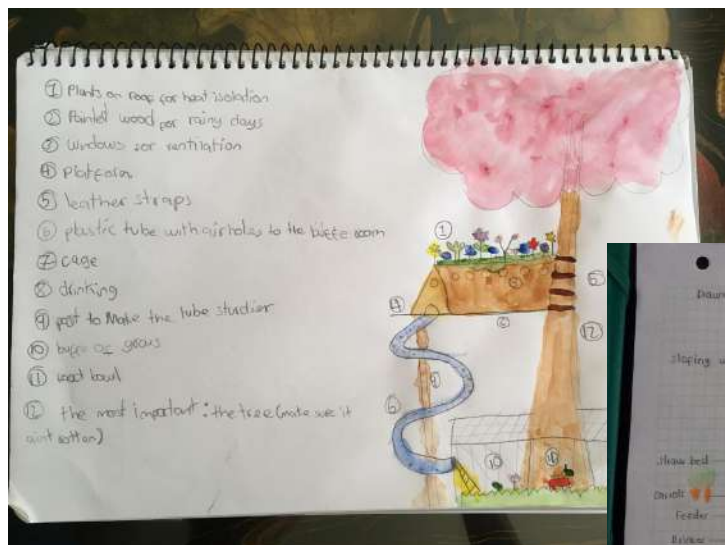 ① Plants on roof for heat isolation
② Painted wood for rainy days
③ windows for ventilation
④ Platform
⑤ leather straps
⑥ plastic tube with airholes to the room
⑦ cage
⑧ drinking
⑨ post to Make the tube sturdier
⑩ of grass
⑪ bowl
⑫ the most important: the tree (make sure it
aint rotten)
①
⑤
⑫
⑥
⑩
Sloping
Straw bed
Carrots
Feeder
Drinker